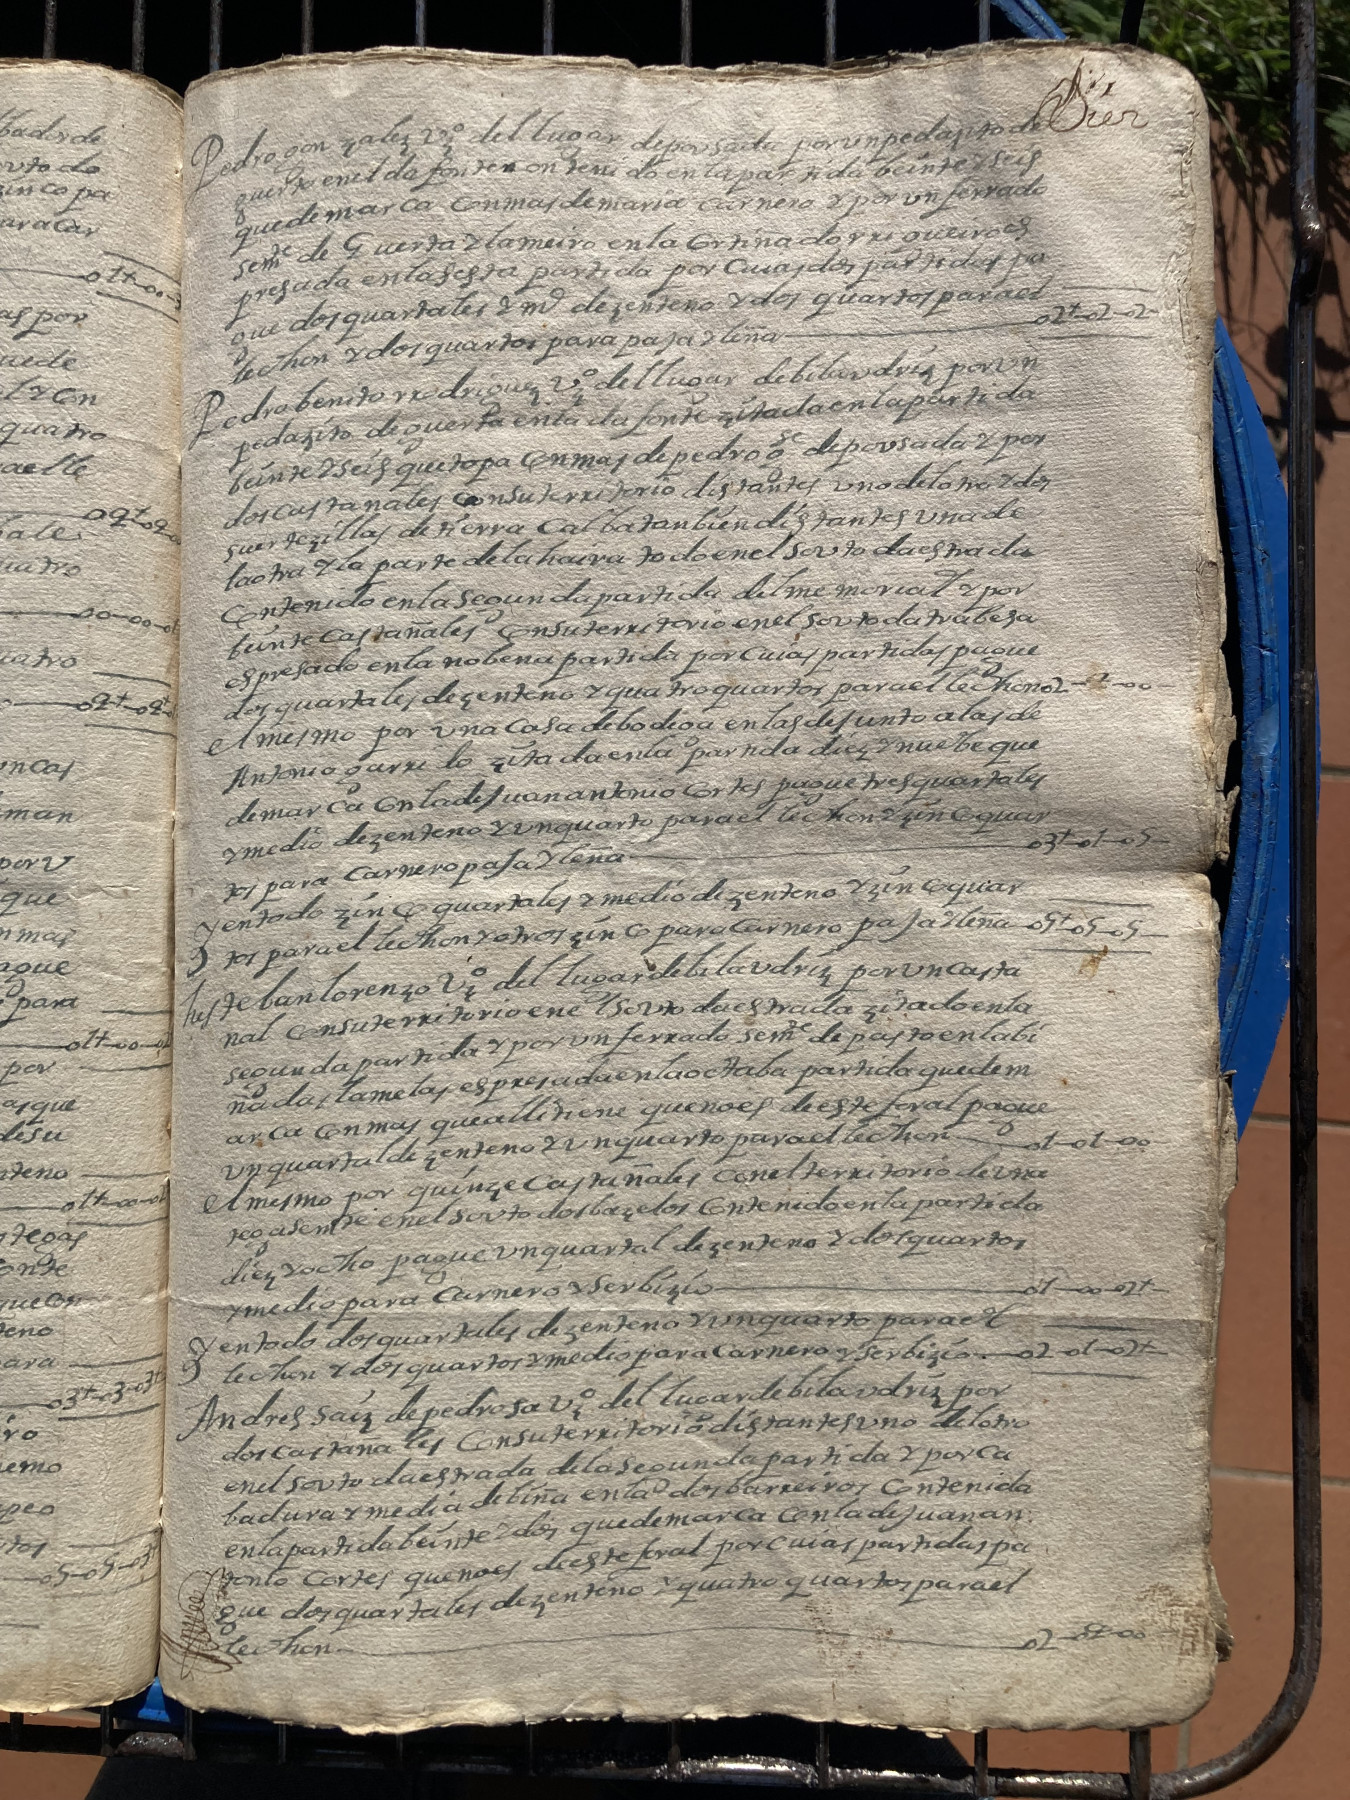 Diez
Pedro gonzalez vzº del lugar de pousada por un pedazito de
guerto en el da fonte contenido en la partida beinte y seis
que demarca con mas de maria carnero y por un ferrado
semte de Guerta y lameiro en la Cortiña do rrigueiro es
presada en la sesta partida por cuias dos partidas pa
gue dos quartales y mº de zenteno y dos quartos para el
lechon y dos quartos para paja y leña o2t-o2-o2-
Pedro benito rrodriguez vzº del lugar de bilaudriz por un
pedazito de guerta en la da fonte zitada en la partida
beinte y seis que topa con mas de pedro gz de pousada y por
dos castañales con su territorio distantes uno del otro y dos
suertezillas de tierra calba tanbien distantes una de
la otra y la parte de la haira todo en el souto da estrada
Contenido en la segunda partida del memorial y por
beinte castañales con su territorio en el souto da trabesa
espresado en la nobena partida por cuias partidas pague
dos quartales de zenteno y quatro quartos para el lechon o2- -oo-
el mesmo por una casa de bodega en las de junto a las de
Antonio garrilo zitada en la partida diez y nuebe que
demarca con la de Juan antonio Cortes pague tres quartales
y medio de zenteno y un quarto para el lechon y zinco quar
tos para carnero paja y leña o3t-o1-o5-
y en todo zinco quartales y medio de zenteno y zinco quar
tos para el lechon y otros zinco para carnero paja y leña o5t-o5-o5-
Esteban lorenzo vzº del lugar de bilaudriz por un casta
nal con su territorio en el souto da estrada zitado en la
segunda partida y por un ferrado semte de pasto en la bi
ña das lamelas espresada en la octaba partida que dem
arca con mas que alli tiene que no es de este foral pague
un quartal de zenteno y un quarto para el lechon o1-o1-oo
el mesmo por quinze castañales con el territorio de una
tega semte en el souto dos bazelos contenido en la partida
diez y ocho pague un quartal de zenteno y dos quartos
y medio para carnero y serbizio o1-oo-o2t-
y en todo dos quartales de zenteno y un quarto para el
lechon y dos quartos y medio para carnero y serbizio o2-o1-o2t-
Andres saiz de pedrosa vzº del lugar de bilaudriz por
dos castañales con su territorio distantes uno del otro
en el souto da estrada de la segunda partida y por ca
badura y media de biña en la dos barreiros contenida
en la partida beinte y dos que demarca con la de Juan an
tonio Cortes que no es de este foral por cuias partidas pa
gue dos quartales de zenteno y quatro quartos para el
lechon o2-o4-oo-